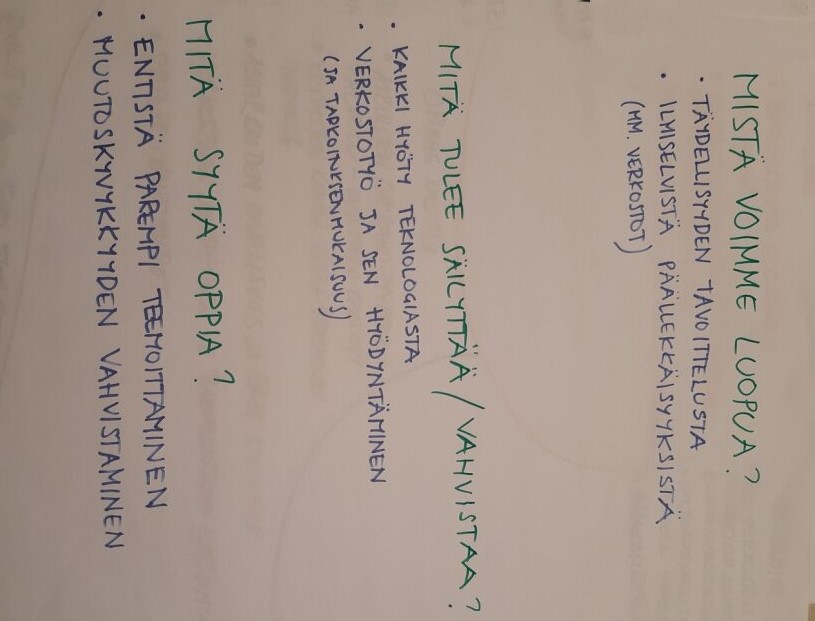 MISTÄ VOIMME LUOPUA?
• TÄYDELLISYYDEN TAVOITTELUSTA
• ILMISELVISTÄ PÄÄLLEKKÄISYYKSISTÄ
(MM. VERKOSTOT)
MITÄ TULEE SÄILYTTÄÄ / VAHVISTAA?
• KAIKKI HYÖTY TEKNOLOGIASTA
• VERKOSTOTYÖ JA SEN HYÖDYNTÄMINEN
(JA TARKOINKSENMUKAISUUS)
MITÄ SYYTÄ OPPIA?
• ENTISTÄ PAREMPI TEEMOITTAMINEN
• MUUTOSKYVYKKYYDEN VAHVISTAMINEN